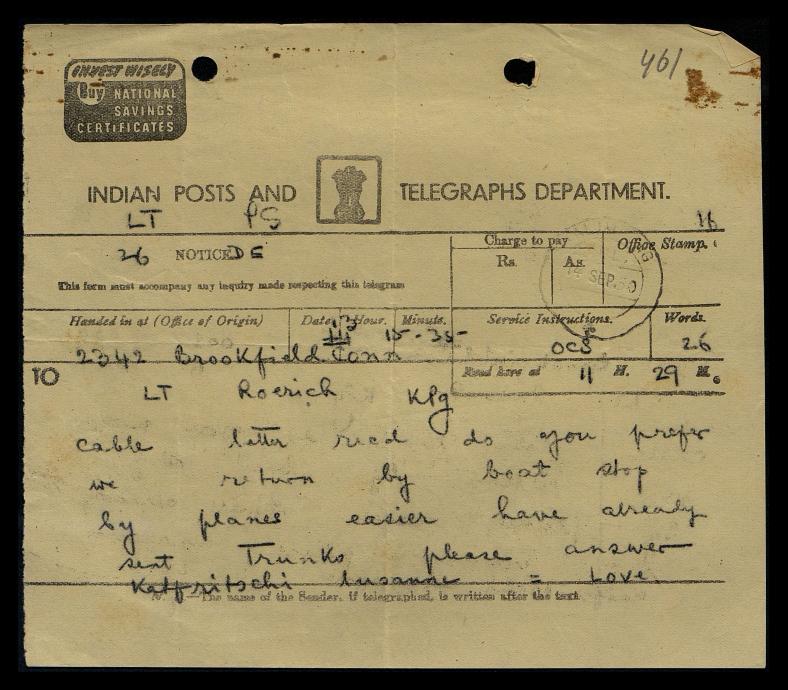 461
INVEST WISELY
Buy NATIONAL
SAVINGS
CERTIFICATES
INDIAN POSTS AND TELEGRAPHS DEPARTMENT.
LT PS 16
26 NOTICE DE
Charge to pay Office Stamp.
Rs. As.
14 SEP.
This form must accompany any inquiry made respecting this telegram
Handed in at (Office of Origin) Date Hour. Minute. Service Instructions. Words.
13 15-35 OCS 26
2342 Brookfield Conn
Recd here at 11 H. 29 M.
TO
LT Roerich KPg
cable letter recd do you prefer
we return by boat stop
by planes easier have already
sent Trunks please answer
Katfritschi Susanne = Love
N.B.—The name of the Sender, if telegraphed, is written after the text